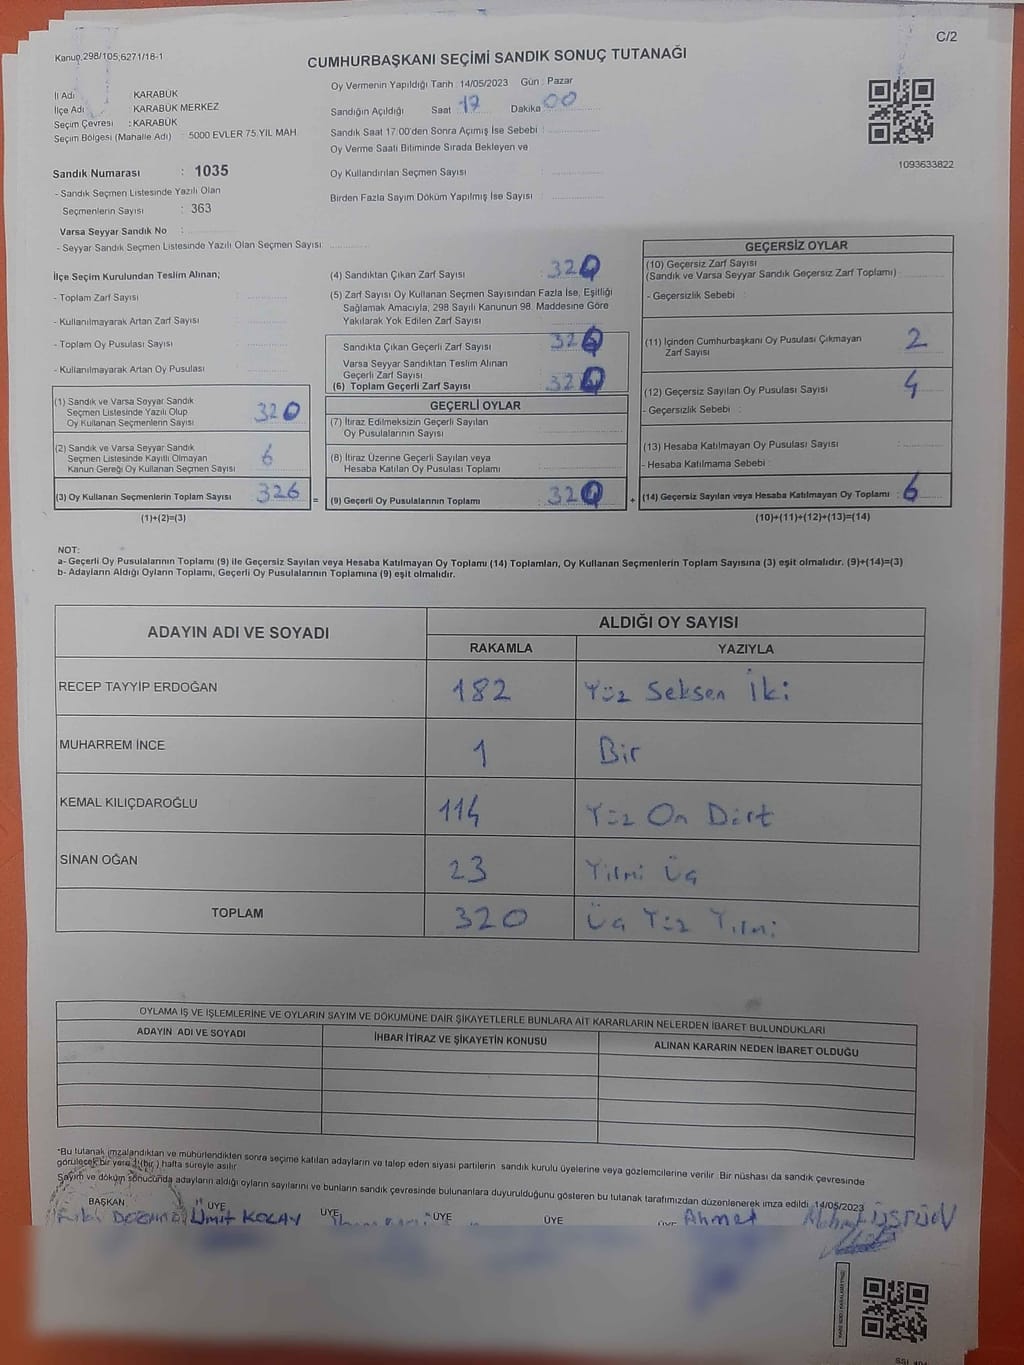 C/2
Kanun 298/105,6271/18-1
CUMHURBAŞKANI SEÇİMİ SANDIK SONUÇ TUTANAĞI
İl Adı KARABÜK
İlçe Adı KARABÜK MERKEZ
Seçim Çevresi : KARABÜK
Seçim Bölgesi (Mahalle Adı) : 5000 EVLER 75.YIL MAH.
Oy Vermenin Yapıldığı Tarih : 14/05/2023 Gün : Pazar
Sandığın Açıldığı Saat 17 Dakika 00
Sandık Saat 17:00'den Sonra Açımış İse Sebebi :
Oy Verme Saati Bitiminde Sırada Bekleyen ve
Oy Kullandırılan Seçmen Sayısı :
Birden Fazla Sayım Döküm Yapılmış İse Sayısı :
1093633822
Sandık Numarası : 1035
- Sandık Seçmen Listesinde Yazılı Olan
Seçmenlerin Sayısı : 363
Varsa Seyyar Sandık No :
- Seyyar Sandık Seçmen Listesinde Yazılı Olan Seçmen Sayısı:
İlçe Seçim Kurulundan Teslim Alınan;
- Toplam Zarf Sayısı :
- Kullanılmayarak Artan Zarf Sayısı :
- Toplam Oy Pusulası Sayısı :
- Kullanılmayarak Artan Oy Pusulası :
(1) Sandık ve Varsa Seyyar Sandık
Seçmen Listesinde Yazılı Olup
Oy Kullanan Seçmenlerin Sayısı : 320
(2) Sandık ve Varsa Seyyar Sandık
Seçmen Listesinde Kayıtlı Olmayan
Kanun Gereği Oy Kullanan Seçmen Sayısı : 6
(3) Oy Kullanan Seçmenlerin Toplam Sayısı : 326 =
(1)+(2)=(3)
(4) Sandıktan Çıkan Zarf Sayısı : 320
(5) Zarf Sayısı Oy Kullanan Seçmen Sayısından Fazla İse, Eşitliği
Sağlamak Amacıyla, 298 Sayılı Kanunun 98. Maddesine Göre
Yakılarak Yok Edilen Zarf Sayısı :
Sandıkta Çıkan Geçerli Zarf Sayısı
Varsa Seyyar Sandıktan Teslim Alınan
Geçerli Zarf Sayısı
(6) Toplam Geçerli Zarf Sayısı
GEÇERLİ OYLAR
(7) İtiraz Edilmeksizin Geçerli Sayılan
Oy Pusulalarının Sayısı :
(8) İtiraz Üzerine Geçerli Sayılan veya
Hesaba Katılan Oy Pusulası Toplamı :
(9) Geçerli Oy Pusulalarının Toplamı : 320 +
GEÇERSİZ OYLAR
(10) Geçersiz Zarf Sayısı
(Sandık ve Varsa Seyyar Sandık Geçersiz Zarf Toplamı) :
- Geçersizlik Sebebi :
(11) İçinden Cumhurbaşkanı Oy Pusulası Çıkmayan
Zarf Sayısı : 2
(12) Geçersiz Sayılan Oy Pusulası Sayısı : 4
- Geçersizlik Sebebi :
(13) Hesaba Katılmayan Oy Pusulası Sayısı :
- Hesaba Katılmama Sebebi :
(14) Geçersiz Sayılan veya Hesaba Katılmayan Oy Toplamı : 6
(10)+(11)+(12)+(13)=(14)
NOT:
a- Geçerli Oy Pusulalarının Toplamı (9) ile Geçersiz Sayılan veya Hesaba Katılmayan Oy Toplamı (14) Toplamları, Oy Kullanan Seçmenlerin Toplam Sayısına (3) eşit olmalıdır. (9)+(14)=(3)
b- Adayların Aldığı Oyların Toplamı, Geçerli Oy Pusulalarının Toplamına (9) eşit olmalıdır.
ADAYIN ADI VE SOYADI
ALDIĞI OY SAYISI
RAKAMLA YAZIYLA
RECEP TAYYİP ERDOĞAN 182 Yüz Seksen İki
MUHARREM İNCE 1 Bir
KEMAL KILIÇDAROĞLU 114 Yüz On Dört
SİNAN OĞAN 23 Yirmi Üç
TOPLAM 320 Üç Yüz Yirmi
OYLAMA İŞ VE İŞLEMLERİNE VE OYLARIN SAYIM VE DÖKÜMÜNE DAİR ŞİKAYETLERLE BUNLARA AİT KARARLARIN NELERDEN İBARET BULUNDUKLARI
ADAYIN ADI VE SOYADI İHBAR İTİRAZ VE ŞİKAYETİN KONUSU ALINAN KARARIN NEDEN İBARET OLDUĞU
*Bu tutanak imzalandıktan ve mühürlendikten sonra seçime katılan adayların ve talep eden siyasi partilerin sandık kurulu üyelerine veya gözlemcilerine verilir. Bir nüshası da sandık çevresinde
görülecek bir yere 1 (bir) hafta süreyle asılır.
Sayım ve döküm sonucunda adayların aldığı oyların sayılarını ve bunların sandık çevresinde bulunanlara duyurulduğunu gösteren bu tutanak tarafımızdan düzenlenerek imza edildi. 14/05/2023
BAŞKAN ÜYE ÜYE ÜYE ÜYE
Ümit KOLAY Ahmet ÜSTÜN